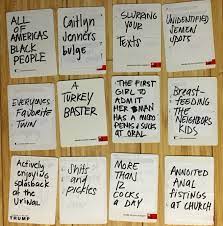 ALL
OF
AMERICAS
BLACK
PEOPLE
Caitlyn
Jenners
bulge
SLURPING
YOUR
Texts
UNIDENTIFIED
SEMEN
SPOTS
EVERYONES
FAVORITE
TWIN
A
TURKEY
BASTER
THE FIRST
GIRL TO
ADMIT IT
HER MAN
HAS A MICRO
PENIS & SUCKS
AT ORAL
BREAST-
FEEDING
THE
NEIGHBORS
KIDS
Actively
enjoying
splashback
at the
urinal
TRUMP
Shits
and
pickles
MORE
THAN
12
COCKS
A DAY
ANNOINTED
ANAL
FISTINGS
AT CHURCH